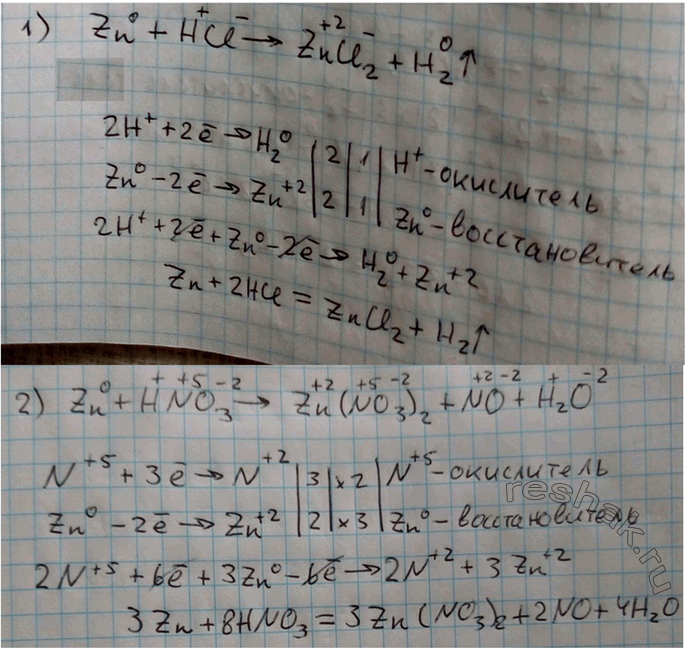 1) Zn⁰ + H⁺Cl⁻ → Zn⁺²Cl₂⁻ + H₂⁰↑
2H⁺ + 2ē → H₂⁰ | 2 | 1 | H⁺ - окислитель
Zn⁰ - 2ē → Zn⁺² | 2 | 1 | Zn⁰ - восстановитель
2H⁺ + 2ē + Zn⁰ - 2ē → H₂⁰ + Zn⁺²
Zn + 2HCl = ZnCl₂ + H₂↑
2) Zn⁰ + H⁺N⁺⁵O₃⁻² → Zn⁺²(N⁺⁵O₃⁻²)₂ + N⁺²O⁻² + H₂⁺O⁻²
N⁺⁵ + 3ē → N⁺² | 3 | x 2 | N⁺⁵ - окислитель
Zn⁰ - 2ē → Zn⁺² | 2 | x 3 | Zn⁰ - восстановитель
2N⁺⁵ + 6ē + 3Zn⁰ - 6ē → 2N⁺² + 3Zn⁺²
3Zn + 8HNO₃ = 3Zn(NO₃)₂ + 2NO + 4H₂O
reshak.ru